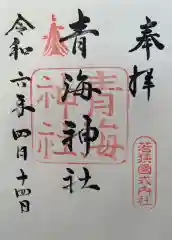 奉拝
青海神社
令和六年四月十四日
青海神社
若狭国式内社